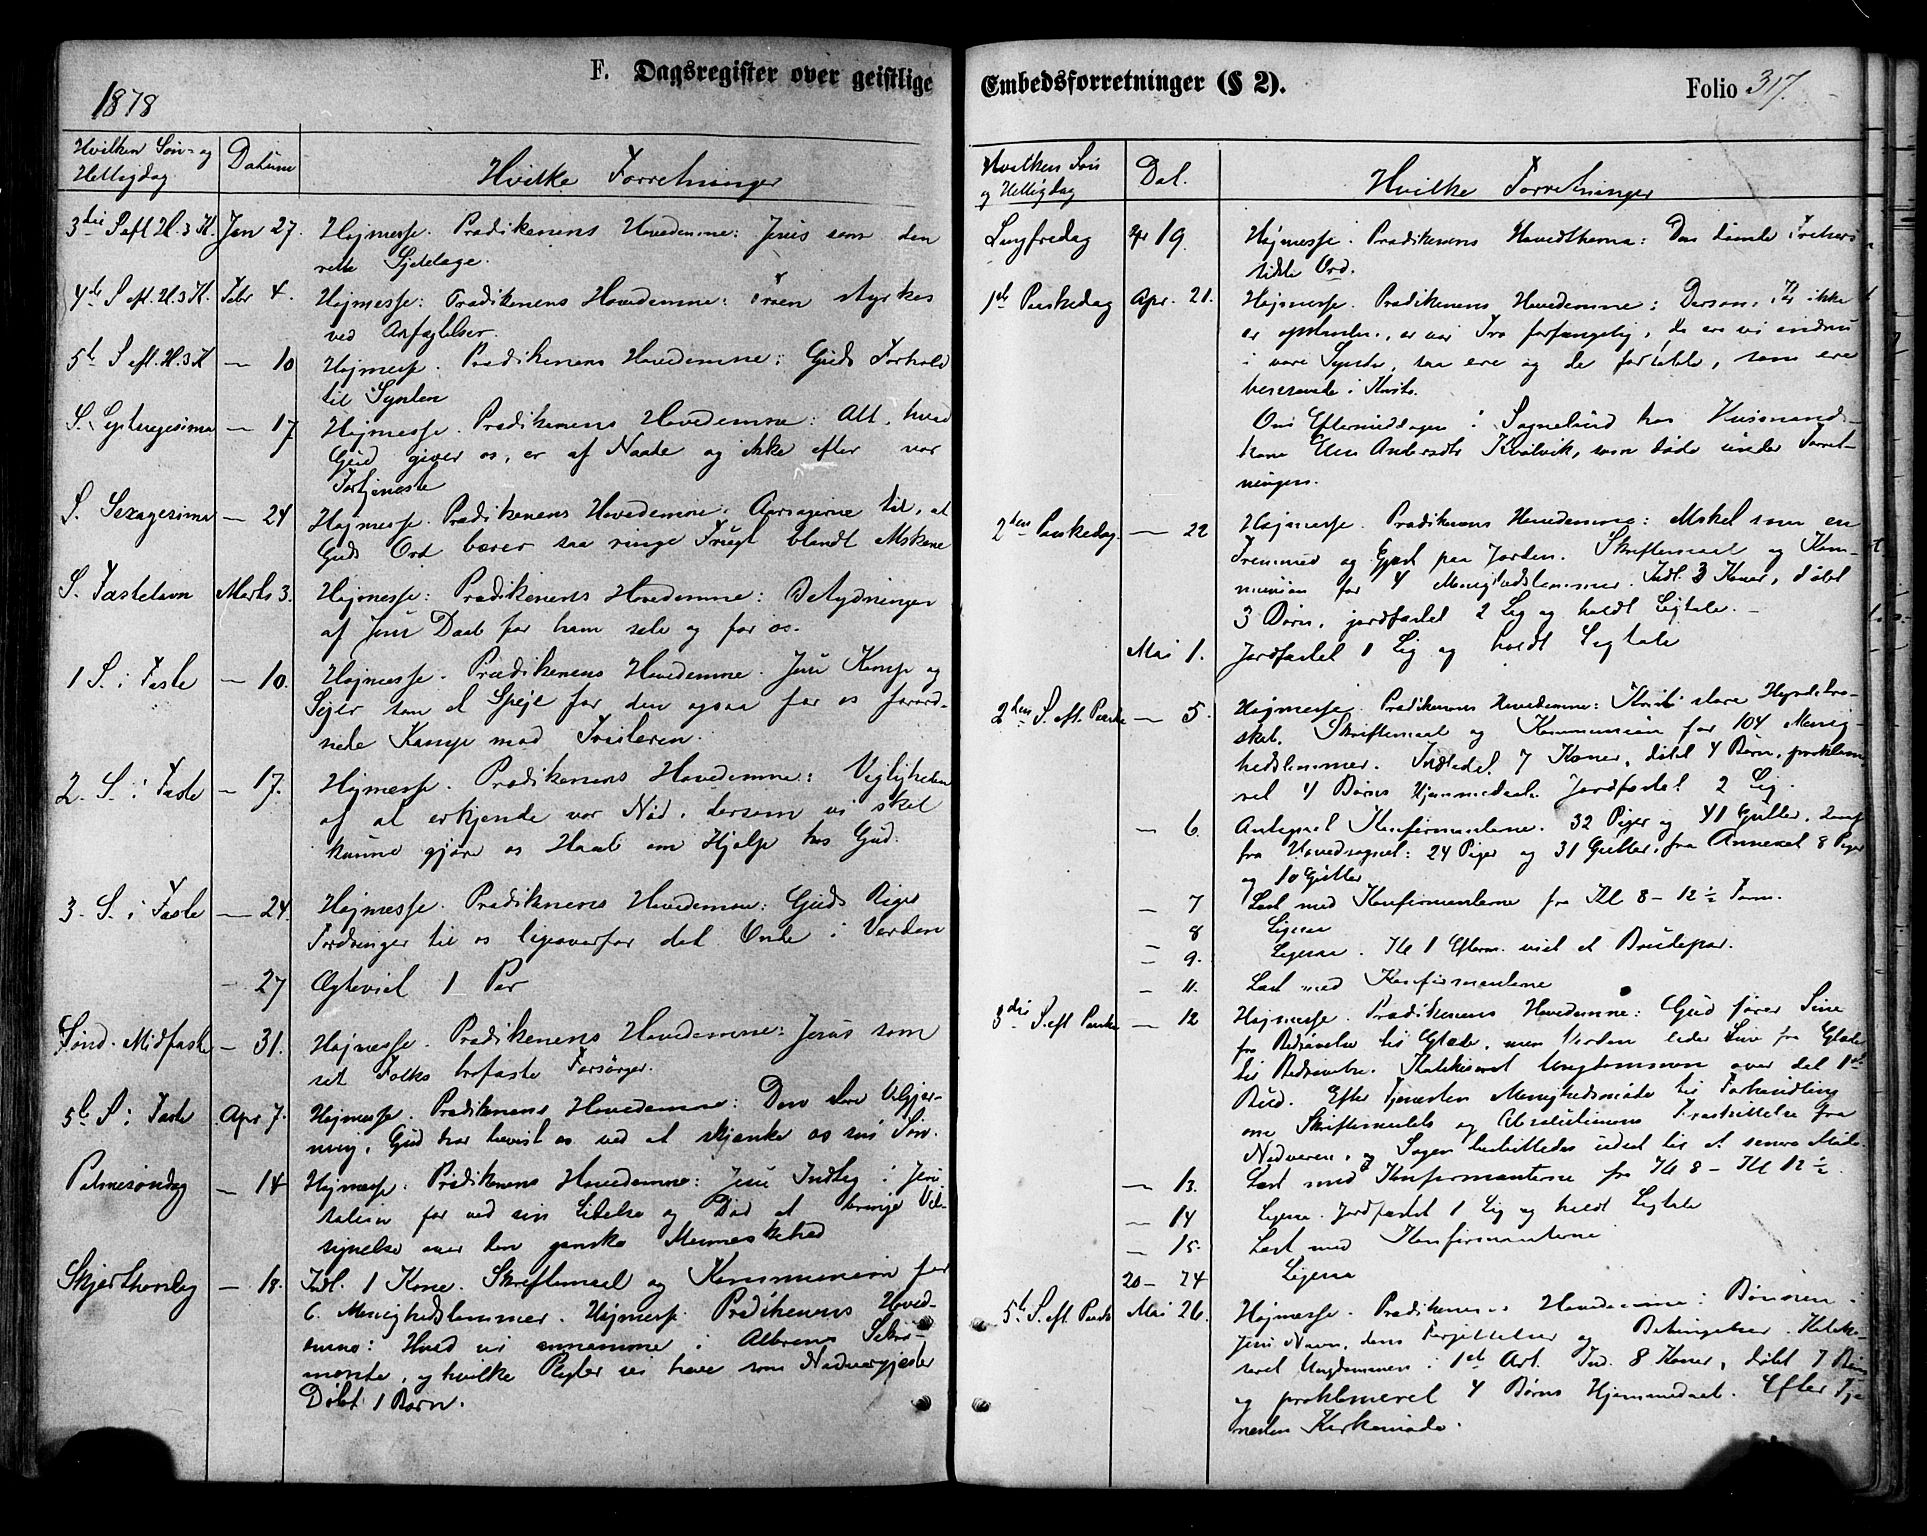 F. Dagsregister over geistlige
1878
Hvilken Søn- og Helligdag
Datum
Hvilke Forretninger
3die S. eft. H. 3 K. Jan 27. Højmesse. Prædikenens Hovedemne: Jesus som den
rette Sjælelæge.
4de S. eft. H. 3 K. Febr 4. Højmesse: Prædikenens Hovedemne: Troen styrkes
ved Anfægtelser.
5te S. eft. H. 3 K. — 10 Højmesse. Prædikenens Hovedemne: Guds Forhold
til Synden
S. Septuagesima — 17 Højmesse. Prædikenens Hovedemne: Alt, hvad
Gud giver os, er af Naade og ikke efter vor
Fortjeneste
S. Sexagesima — 24 Højmesse. Prædikenens Hovedemne: Aarsagerne til, at
Guds Ord bærer saa ringe Frugt blandt Mskene
S. Fastelavn Marts 3. Højmesse: Prædikenens Hovedemne: Betydningen
af Jesu Daab for ham selv og for os.
1 S. i Faste — 10. Højmesse. Prædikenens Hovedemne. Jesu Kamp og
Sejer som et Spejl for den ogsaa for os forord-
nede Kamp mod Fristeren.
2. S. i Faste — 17. Højmesse. Prædikenens Hovedemne: Vigtigheden
af at erkjende vor Nød, dersom vi skal
kunne gjøre os Haab om Hjælp hos Gud.
3. S. i Faste — 24. Højmesse. Prædikenens Hovedemne: Guds Riges
Fordringer til os ligeoverfor det Onde i Verden
— 27 Ægteviet 1 Par
Sønd. Midfaste — 31. Højmesse. Prædikenens Hovedemne: Jesus som
sit Folks trofaste Forsørger.
5te S. i Faste Apr 7. Højmesse. Prædikenens Hovedemne: Den store Velgjer-
ning, Gud har bevist os ved at skjænke os sin Søn.
Palmesøndag — 14 Højmesse. Prædikenens Hovedemne: Jesu Indtog i Jeru-
salem for ved sin Lidelse og Død at bringe Vel-
signelse over den ganske Menneskehed
Skjærthorsdag — 18. Indl. 1 Kone. Skriftemaal og Kommunion for
6 Menighedslemmer. Højmesse. Prædikenens Hoved-
emne: Hvad vi annamme i Alterens Sakra-
mente, og hvilke Pligter vi have som Nadvergjæster
Døbt 1 Barn.
Embedsforretninger (§ 2).
Folio 317.
Hvilken Søn og Helligdag
Dat.
Hvilke Forretninger
Langfredag Apr 19. Højmesse. Prædikenens Hovedthema: Den døende Frelsers
sidste Ord.
1ste Paaskedag Apr. 21. Højmesse. Prædikenens Hovedemne: Dersom Kr ikke
er opstanden, er vor Tro forfængelig, da ere vi endnu
i vore Synder, saa ere og de fortabte, som ere
hensovede i Kristo.
Om Eftermiddagen i Sognebud hos Husmands-
kone Elen Andersdtr Kvalvik, som døde under Forret-
ningen.
2den Paaskedag. — 22 Højmesse. Prædikenens Hovedemne: Mskel som en
Fremmed og Gjæst paa Jorden. Skriftemaal og Kom-
munion for 4 Menighedslemmer. Indl. 3 Koner, døbt
3 Børn, jordfæstet 2 Lig og holdt Ligtale. —
Mai 1. Jordfæstet 1 Lig og holdt Ligtale
2den S. eft. Paaske — 5. Højmesse. Prædikenens Hovedemne: Kristi store Hyrdetro-
skab. Skriftemaal og Kommunion for 104 Menig-
hedslemmer. Indledet 7 Koner, døbt 4 Børn, proklame-
ret 4 Børns Hjemmedaab. Jordfæstet 2 Lig.
— 6. Antegnet Konfirmanterne. 32 Piger og 41 Gutter,
fra Hovedsognet: 24 Piger og 31 Gutter, fra Annexet 8 Piger
og 10 Gutter
— 7 Læst med Konfirmanterne fra Kl 8 - 12 ½ Form.
— 8 Ligesaa
— 9. Ligesaa. Kl 1 Efterm. viet et Brudepar.
— 11. Læst med Konfirmanterne
3die S. eft Paaske — 12 Højmesse. Prædikenens Hovedemne: Gud fører Sine
fra Bedrøvelse til Glæde, men Verden leder Sine fra Glæde
til Bedrøvelse. Katekiseret Ungdommen over det 1ste
Bud. Efter Tjenesten Menighedsmøde til Forhandling
om Skriftemaalets og Absolutionens Fraskillelse fra
Nadveren, og Sagen besluttedes udsat til et senere Møde.
— 13. Læst med Konfirmanterne fra Kl 8 - Kl 12 ½.
— 14 Ligesaa. Jordfæstet 1 Lig og holdt Ligtale
— 15. Læst med Konfirmanterne
20 - 24 Ligesaa
5te S. eft Paaske Mai 26. Højmesse. Prædikenens Hovedemne: Bønnen i
Jesu Navn, dens Forjættelser og Betingelser. Kateki-
seret Ungdommen i 1ste Art. Ind. 8 Koner, døbt 7 Børn
og proklameret 4 Børns Hjemmedaab. Efter Tje-
nesten Kirkemøde.